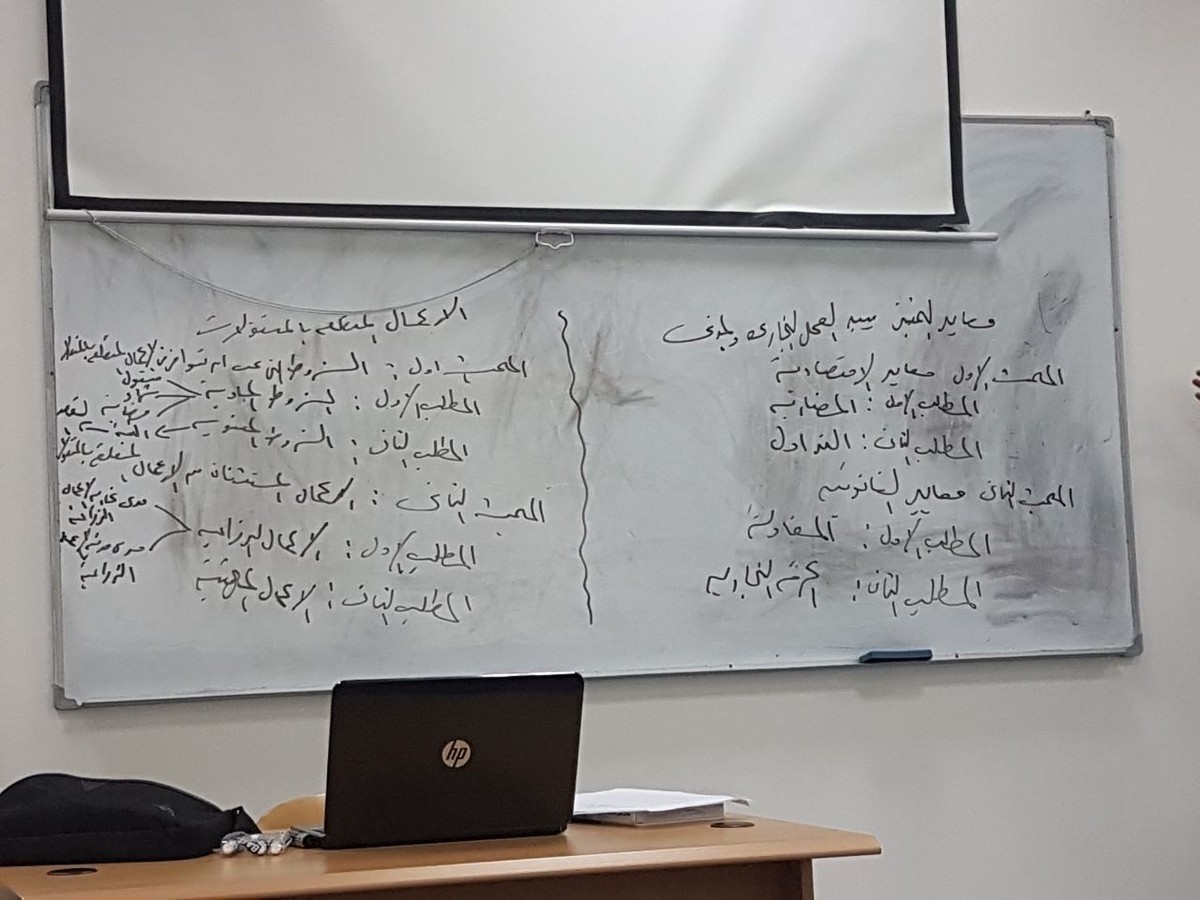 معايير التمييز بين العمل التجاري والمدني
المبحث الأول معايير الاقتصادية
المطلب الأول: المضاربة
المطلب الثاني: التداول
المبحث الثاني معايير القانونية
المطلب الأول: المقاولة
المطلب الثاني: الحرفة التجارية
الاعمال المتعلقة بالمنقولات
المبحث الأول: الشروط التي يجب ان تتوافر في الأعمال المتعلقة بالمنقولات
المطلب الأول: الشروط المادية
المطلب الثاني: الشروط المعنوية
المبحث الثاني: الأعمال المستثناة من الاعمال المتعلقة بالمنقول
المطلب الأول: الأعمال الزراعية
مدى تجارية الأعمال الزراعية
مدى مدنية الأعمال الزراعية
المطلب الثاني: الاعمال المهنية
hp